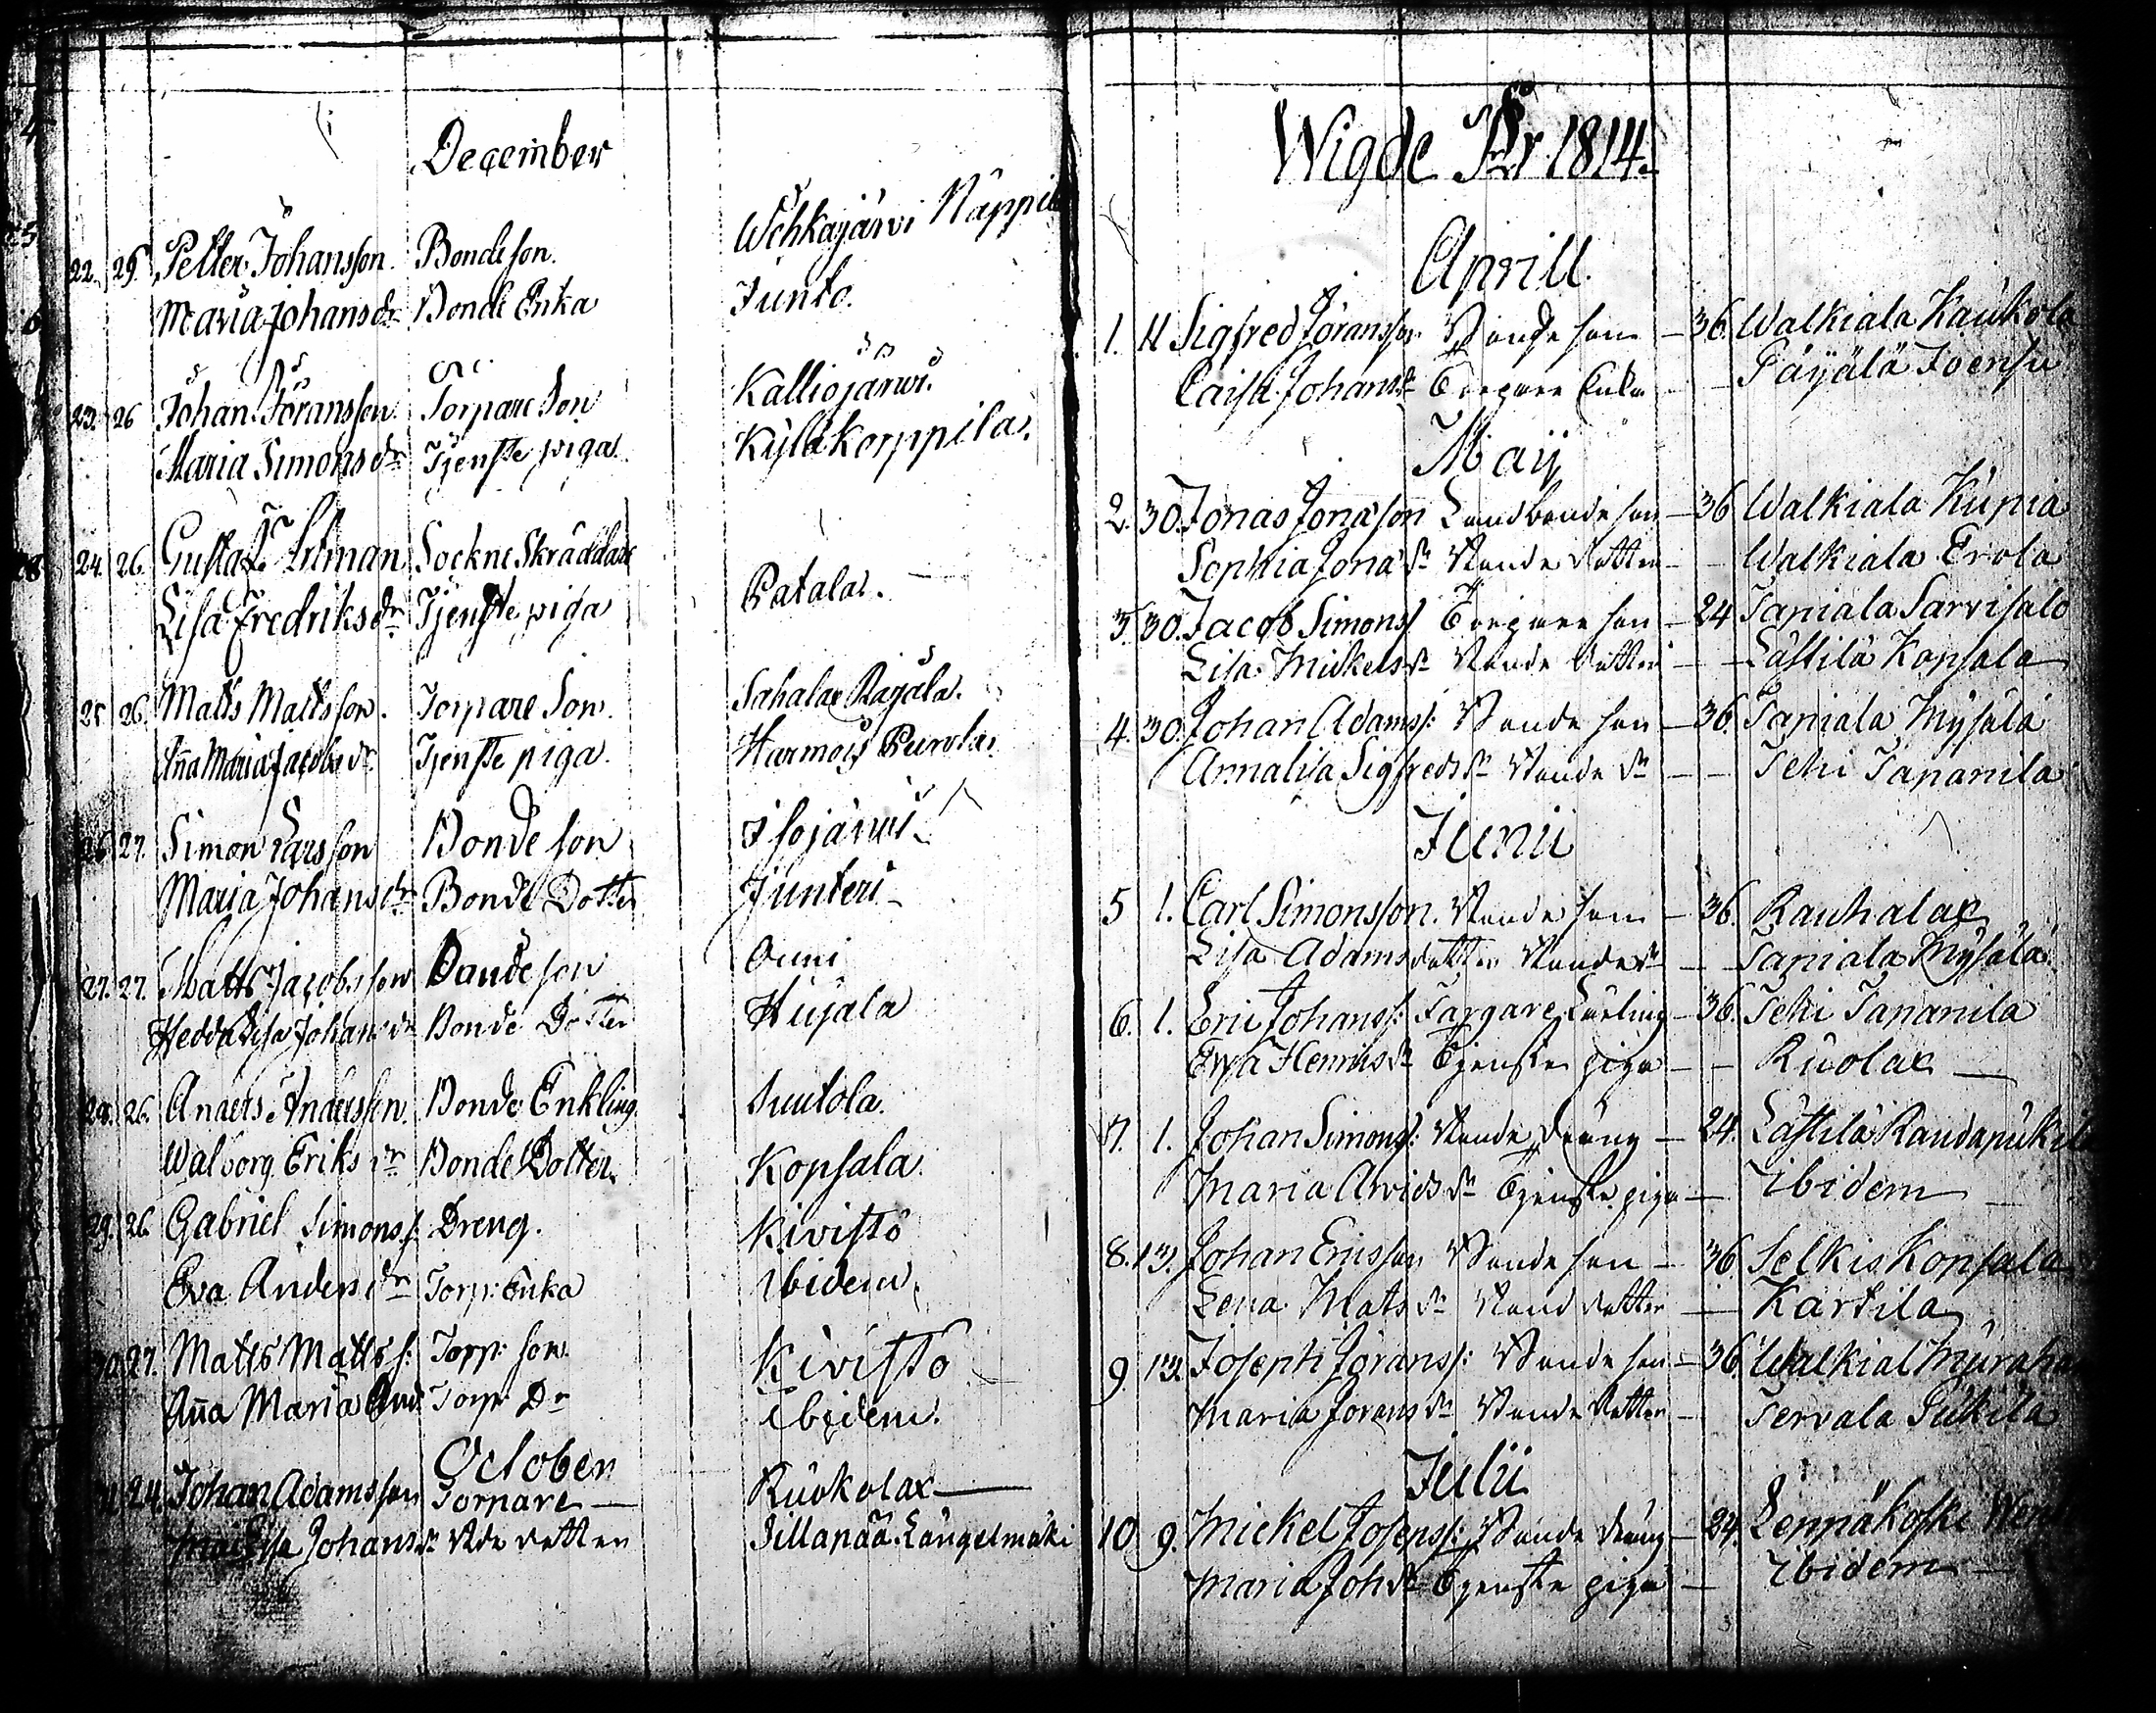 December
22. 29. Petter Johansson. Bondeson. Wehkajärvi Näppilä
Maria Johansdr Bonde Enka Junto.
23. 26 Johan Göransson Torpare Son Kalliojärwi.
Maria Simonsdr Tjenste piga. Kyläkorppila.
24. 26. Gustaf Sockne Skräddare
Lisa Fredriksdr Tjenste piga Patala.
25 26. Matts Mattsson. Torpare Son. Sahalax Rajala.
Aña Maria Jacobsdr. Tjenste piga. Harmois Purola.
26. 27. Simon Larsson Bonde son Isojärwi.
Maria Johansdr Bonde Dotter Junteri
27. 27. Matts Jacobsson Bonde son Ouni
Hedda Lisa Johansdr Bonde Dotter Hujala
28. 26. Anders Andersson. Bonde Enkling. Nutola.
Walborg Eriksdr Bonde Dotter. Kopsala.
29. 26. Gabriel Simonss: Dreng. Kivistö
Eva Andersdr Torp: Enka Ibidem.
30. 27. Matts Matts: Torp: son. Kivistö
Aña Maria And Torp Dr Ibidem.
October
24. Johan Adamsson Torpare Ruokolax
Maja Lisa Johansdr Bde dotter Jillanää. Längelmäki
Wigde År 1814.
Aprill
1. 11 Sigfred Göransson Bonde son – 36. Walkiala Kaukola
Caisa Johansdr Torpare Enka – – Päyälä Joensu
Maij
2. 30. Jonas Jonasson Landbonde son – 36 Walkiala Kupia
Sophia Jonasdr Bonde dotter – – Walkiala Erola
3. 30. Jacob Simons: Torpare son – 24 Tapiala Sarvisalo
Lisa Mickelsdr Bonde dotter – – Lästilä Kopsala
4. 30. Johan Adamss: Bonde son – 36. Tapiala Mysälä
Annalisa Sigfredsdr Bonde dr – – Tehi Tapanila
Junii
5 1. Carl Simonsson. Bonde son – 36. Rauhalax
Lisa Adamsdotter Bonde dr – – Tapiala Mysälä
6. 1. Eric Johanss: Färgare Lärling – 36. Tehi Tapanila
Ewa Henrics dr Tjenste piga – – Ruolax
7. 1. Johan Simons: Bonde dräng – 24. Lästilä
Maria Arvids dr Tjenste piga – Ibidem
8. 13. Johan Ericsson Bonde son – 36. Selkis Kopsala
Lena Mats dr Bond dotter – Kartila
9. 13. Joseph Göranss: Bonde son – 36. Walkial
Maria Görans dr Bonde dotter – Tervala Pukila
Julii
10 9. Mickel Josephss: Bonde dräng – 24. Leppäkoski
Maria Joh dr Tjenste piga – Ibidem